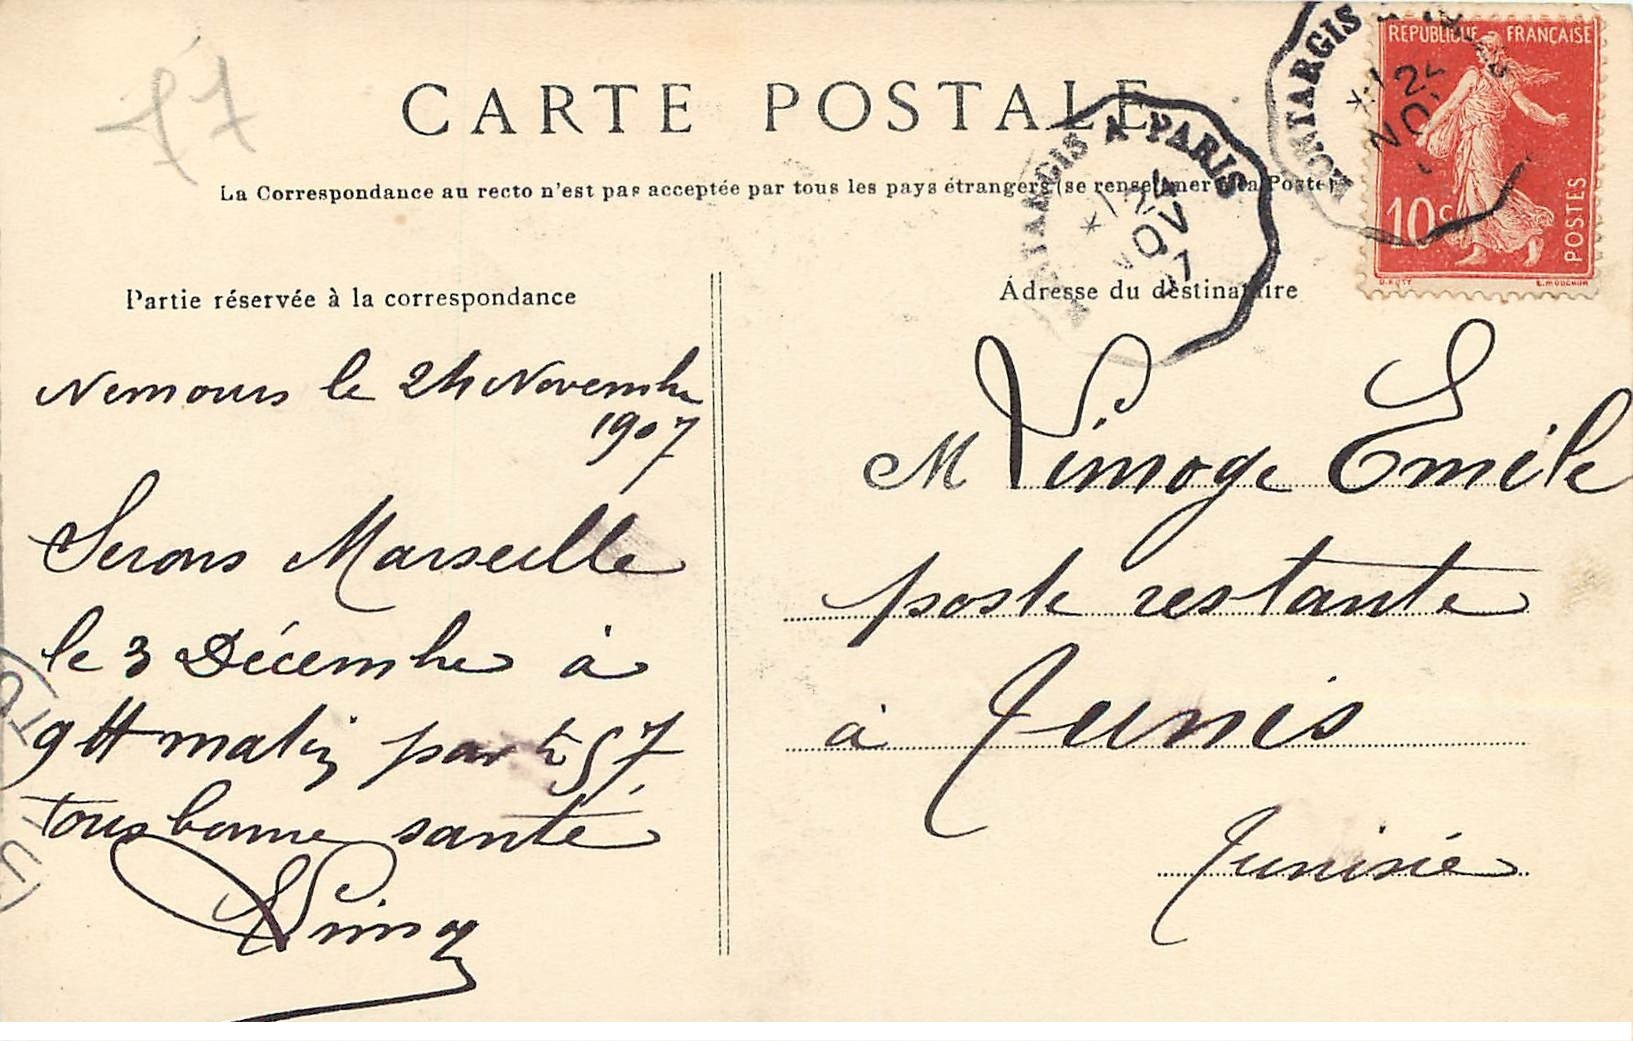 77
CARTE POSTALE
La Correspondance au recto n'est pas acceptée par tous les pays étrangers (se renseigner à la Poste)
MONTARGIS A PARIS
24
NOV
07
MONTARGIS
24
NOV
REPUBLIQUE FRANÇAISE
10c
POSTES
O.ROTY
E.MOUCHON
Partie réservée à la correspondance
Nemours le 24 Novembre
1907
Serons Marseille
le 3 Décembre à
9 H matin par
tous bonne santé
Adresse du destinataire
M Vimoge Emile
poste restante
à Tunis
Tunisie